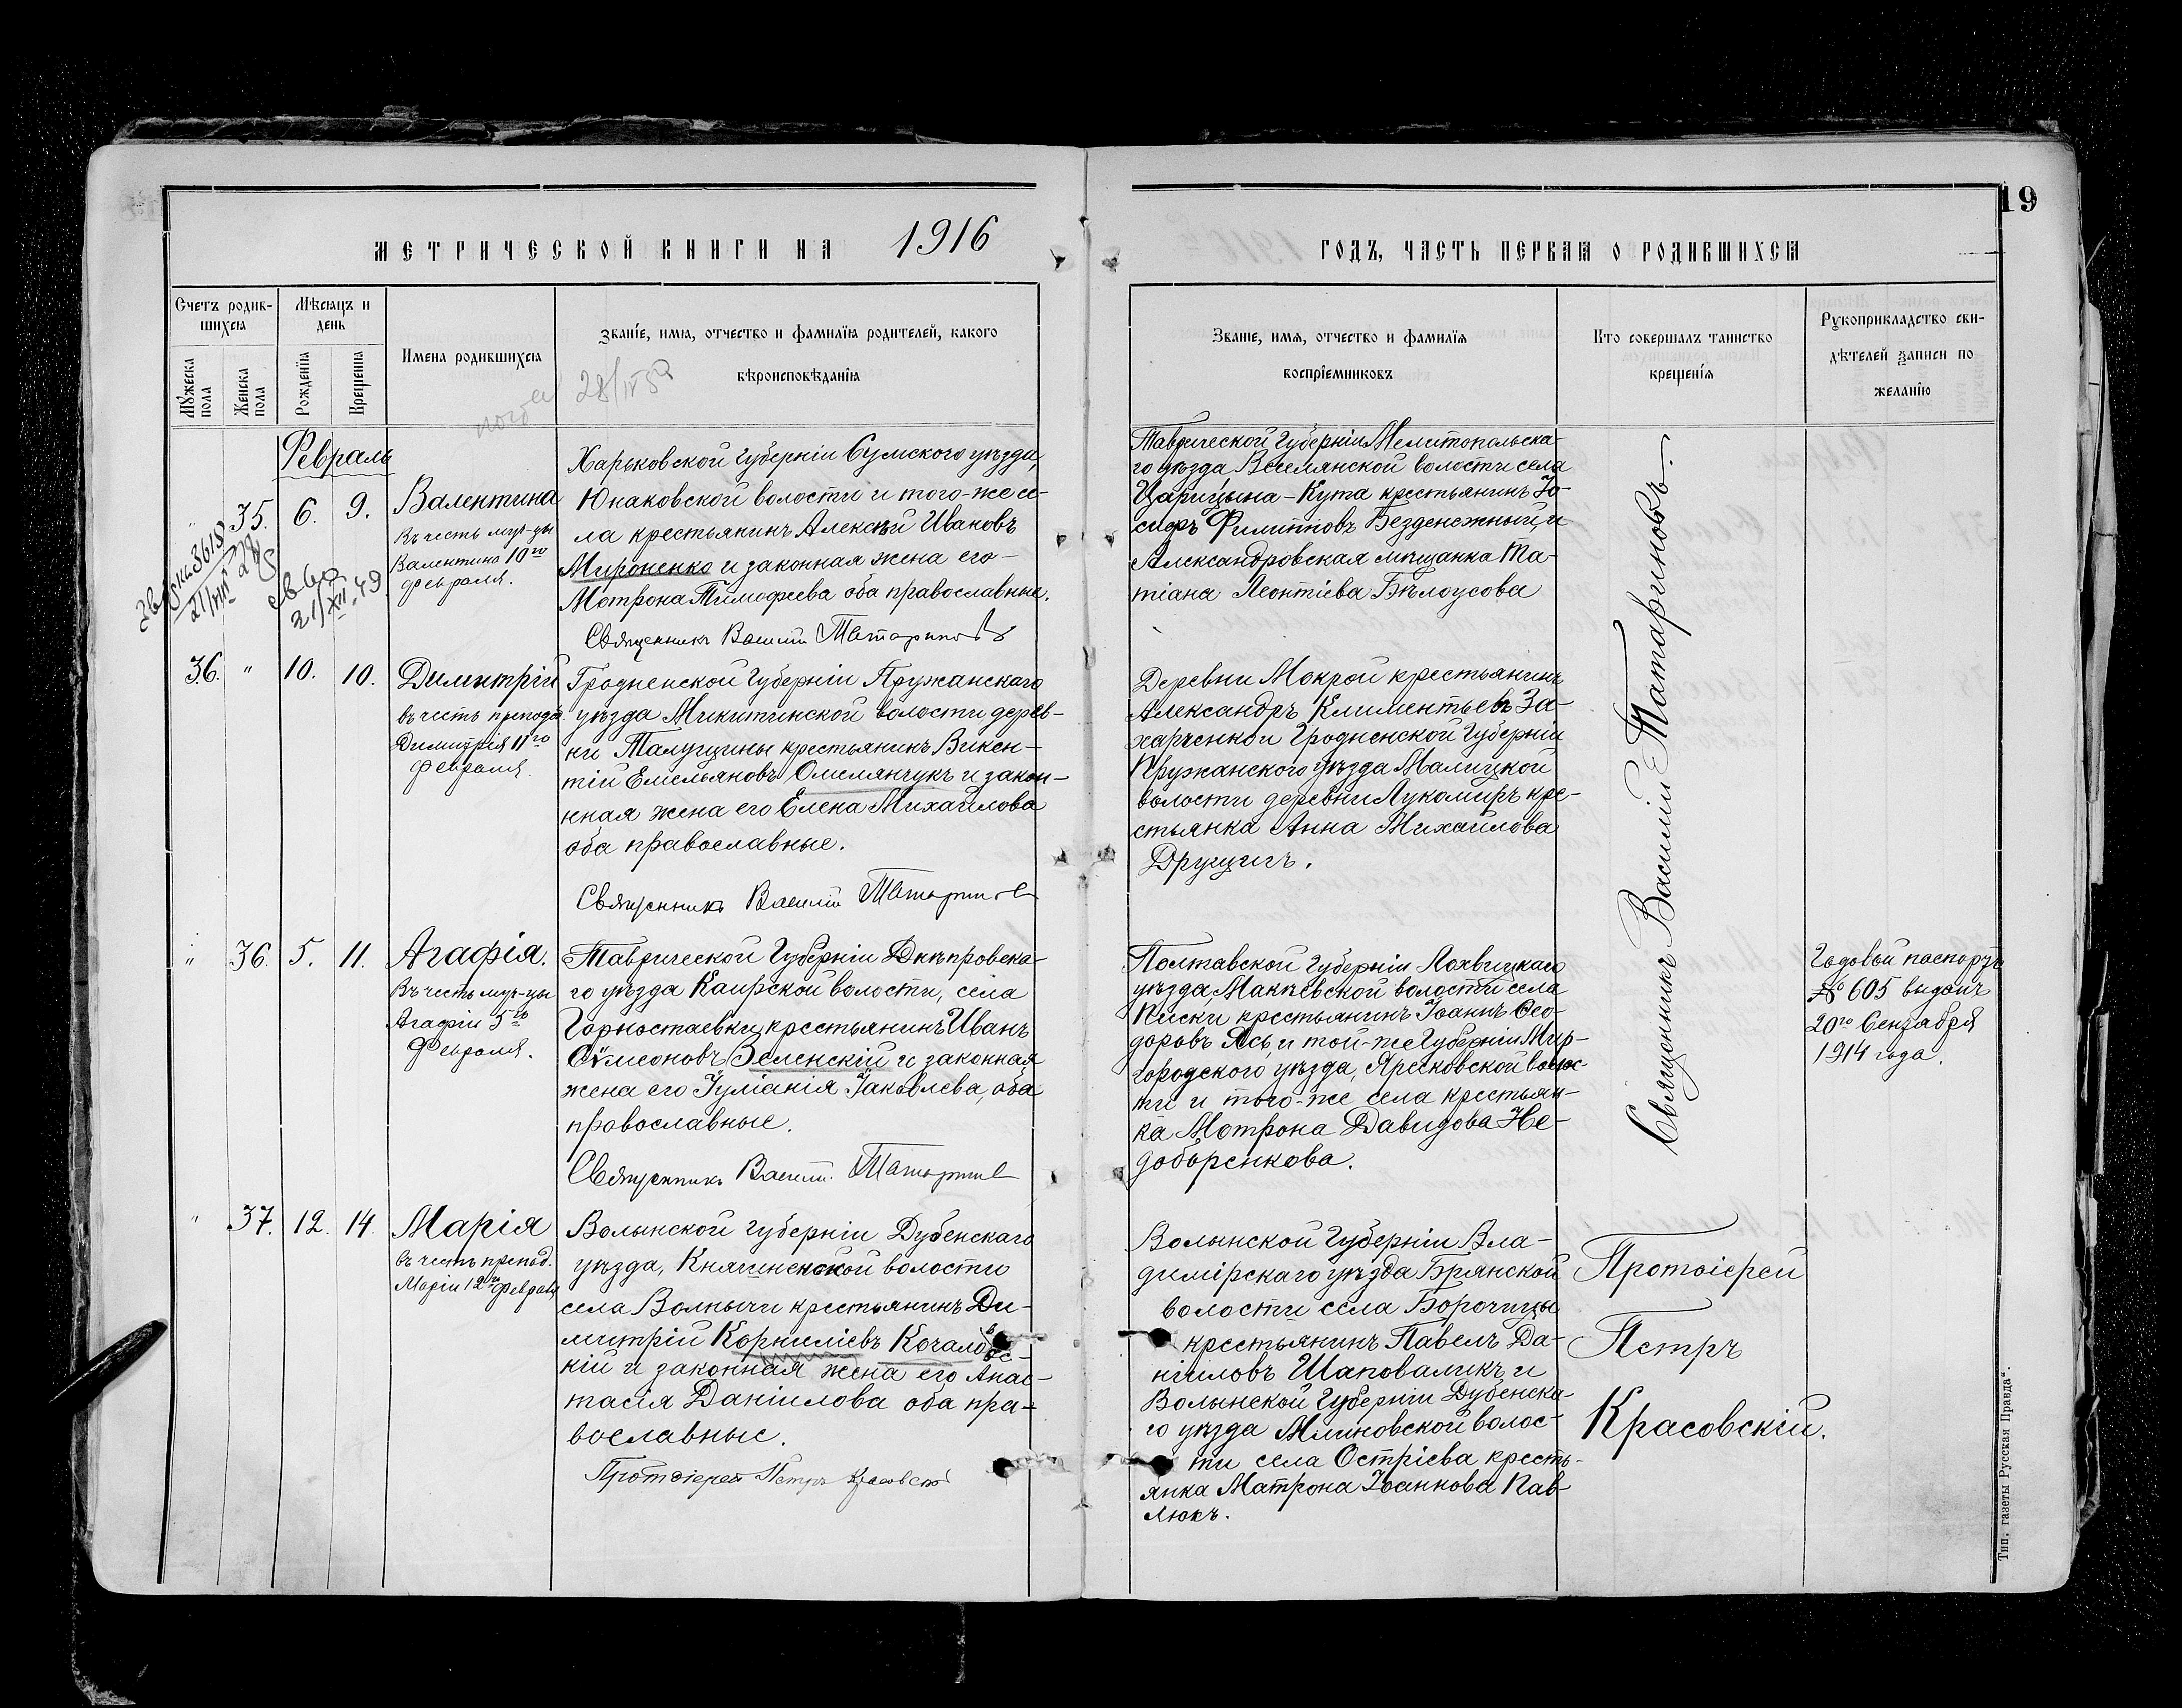 19
МЕТРИЧЕСКОЙ КНИГИ НА 1916
ГОДЪ, ЧАСТЬ ПЕРВАЯ О РОДИВШИХСЯ
Счетъ родив-
шихся
Мѣсяцъ и
день
Мужеска
пола
Женска
пола
Рожденїя
Крещенїя
Имена родившихся
Званїе, имя, отчество и фамилїя родителей, какого
вѣроисповѣданїя
Званїе, имя, отчество и фамилїя
воспрїемниковъ
Кто совершалъ таинство
крещенїя
Рукоприкладство сви-
дѣтелей записи по
желанїю
28/IV 5
Февраль
" 35. 6. 9.
3618
21/VIII
св-во
21/XII-49
Валентина
Въ честь муч-цы
Валентины 10го
Февраля.
Харьковской губерніи Сумского уѣзда,
Юнаковской волости и того-же се-
ла крестьянинъ Алексѣй Ивановъ
Мироненко и законная жена его
Мотрона Тимофеева оба православные.
Священникъ Василій Татариновъ
Таврической губерніи Мелитопольска-
го уѣзда Веселянской волости села
Царицына-Кута крестьянинъ Іо-
сифъ Филипповъ Безденежный и
Александровская мѣщанка Та-
тіана Леонтіева Бѣлоусова
36. " 10. 10.
Димитрій
въ честь преподоб.
Димитрія 11го
Февраля.
Гродненской губерніи Пружанскаго
уѣзда Микитинской волости дерев-
ни Талущины крестьянинъ Викен-
тій Емельяновъ Омелянчукъ и закон-
нная жена его Елена Михайлова
оба православные.
Священникъ Василій Татариновъ
Деревни Мокрой крестьянинъ
Александръ Климентьевъ За-
харченко и Гродненской губерніи
Пружанского уѣзда Малицкой
волости деревни Лукомиръ кре-
стьянка Анна Михайлова
Друцигъ.
" 36. 5. 11.
Агафія.
Въ честь муч-цы
Агафіи 5го
Февраля.
Таврической губерніи Днѣпровска-
го уѣзда Каирской волости, села
Горностаевки крестьянинъ Иванъ
Сѵмеоновъ Зеленскій и законная
жена его Іуліанія Іаковлева, оба
православные.
Священникъ Василій Татариновъ
Полтавской губерніи Лохвицкаго
уѣзда Макѣевской волости села
Пѣски крестьянинъ Іоаннъ Ѳео-
доровъ Ясь, и той-же губерніи Мир-
городского уѣзда, Яресковской волос-
ти и того-же села крестьян-
ка Мотрона Давидова Не-
доборенкова.
Священникъ Василій Татариновъ.
Годовой паспортъ
№ 605 выданъ
20го Сентября
1914 года.
" 37. 12. 14.
Марія
въ честь препод.
Маріи 12го Февраля
Волынской губерніи Дубенскаго
уѣзда, Княгининской волости
села Волпычи крестьянинъ Ди-
митрій Корниліевъ Кочаловс-
кій и законная жена его Анас-
тасія Даніилова оба пра-
вославные.
Протоіерей Петръ Красовскій
Волынской губерніи Вла-
димірскаго уѣзда Брянской
волости села Борочицы
крестьянинъ Павелъ Да-
ніиловъ Шаповаликъ и
Волынской губерніи Дубенска-
го уѣзда Млиновской волос-
ти села Остріева кресть-
янка Матрона Іоаннова Пав-
люкъ.
Протоіерей
Петръ
Красовскій.
Тип. газеты Русская Правда“.